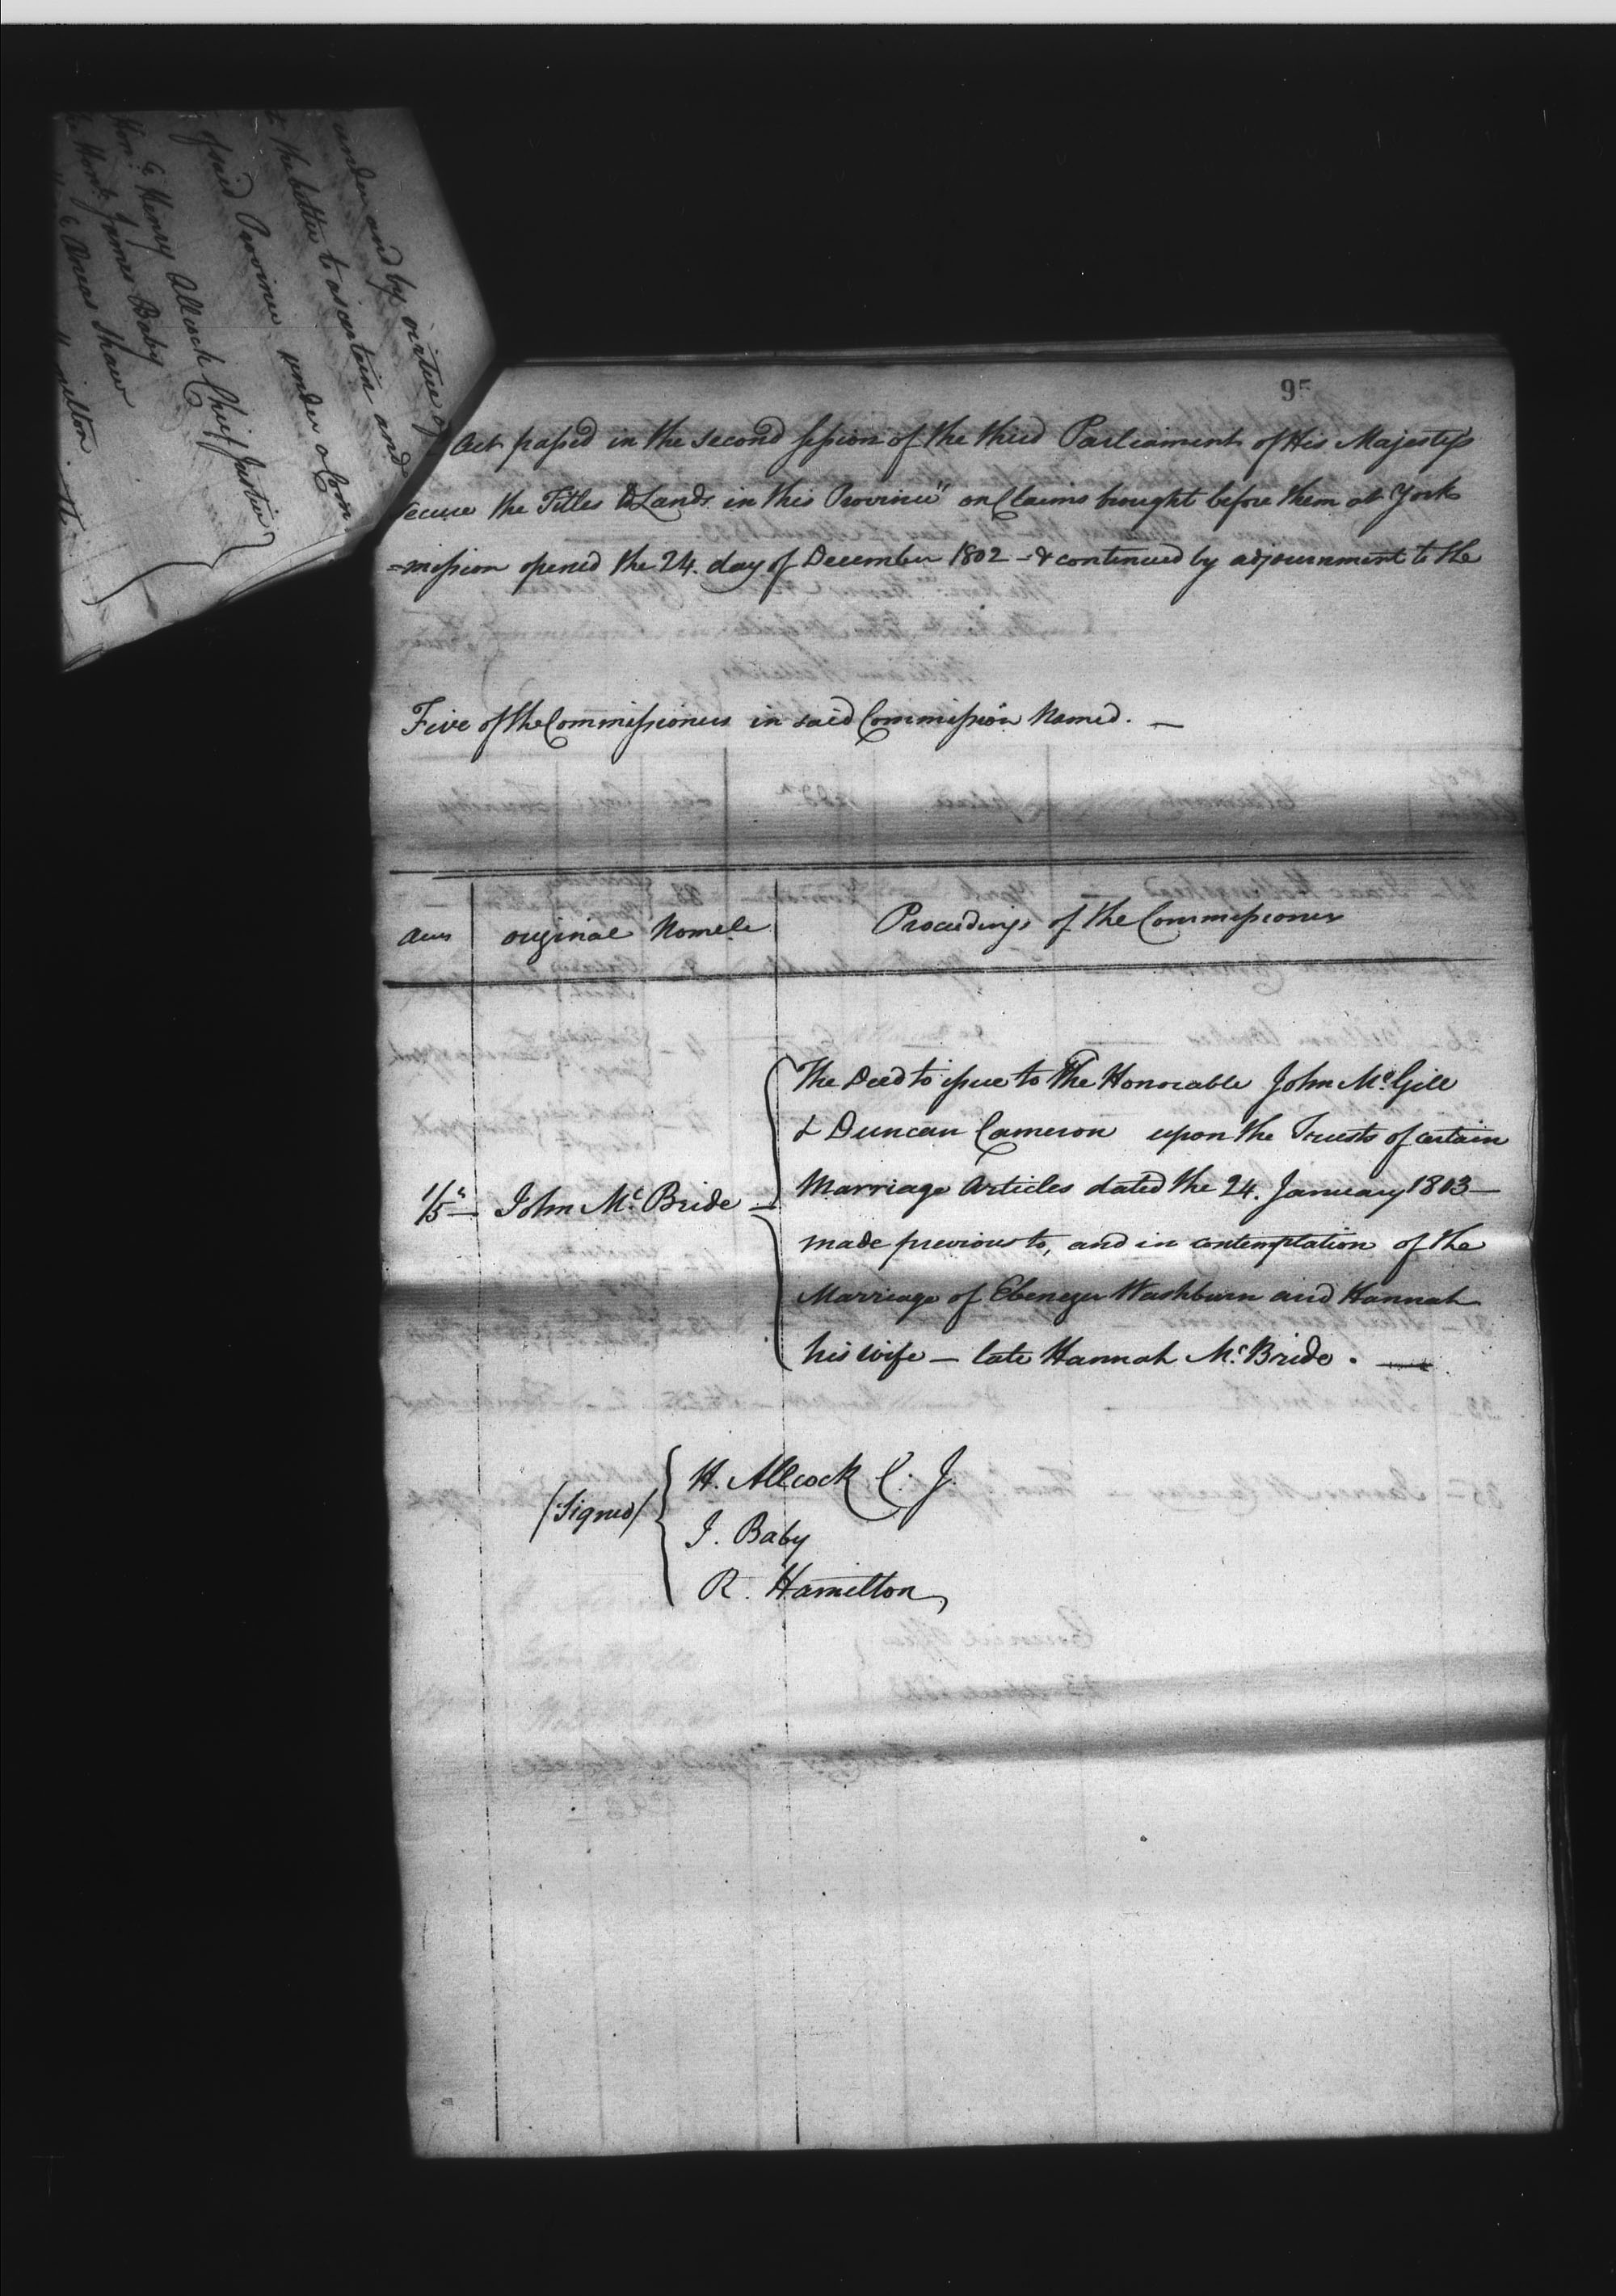 under and by virtue of
the better to ascertain and
of said Province under a Com
Henry Allcock Chief Justice
Hon: James Baby
Honb. Æneas Shaw
milton
95
Act passed in the second session of the third Parliament of His Majestys
secure the Titles to Lands in this Province" on Claims brought before them at York
=mission opened the 24. day of December 1802 - & continued by adjournment to the
Five of the Commissioners in said Commission Named. —
Acres original Nomee Proceedings of the Commissioners
The Deed to issue to The Honorable John McGill
& Duncan Cameron upon the Trusts of certain
Marriage Articles dated the 24. January 1803 —
1/5 — John Mc Bride —
made previous to, and in contemptation of the
Marriage of Ebenezer Washburn and Hannah
his wife — late Hannah McBride. —
(Signed)
H. Allcock C. J.
J. Baby
R. Hamilton,